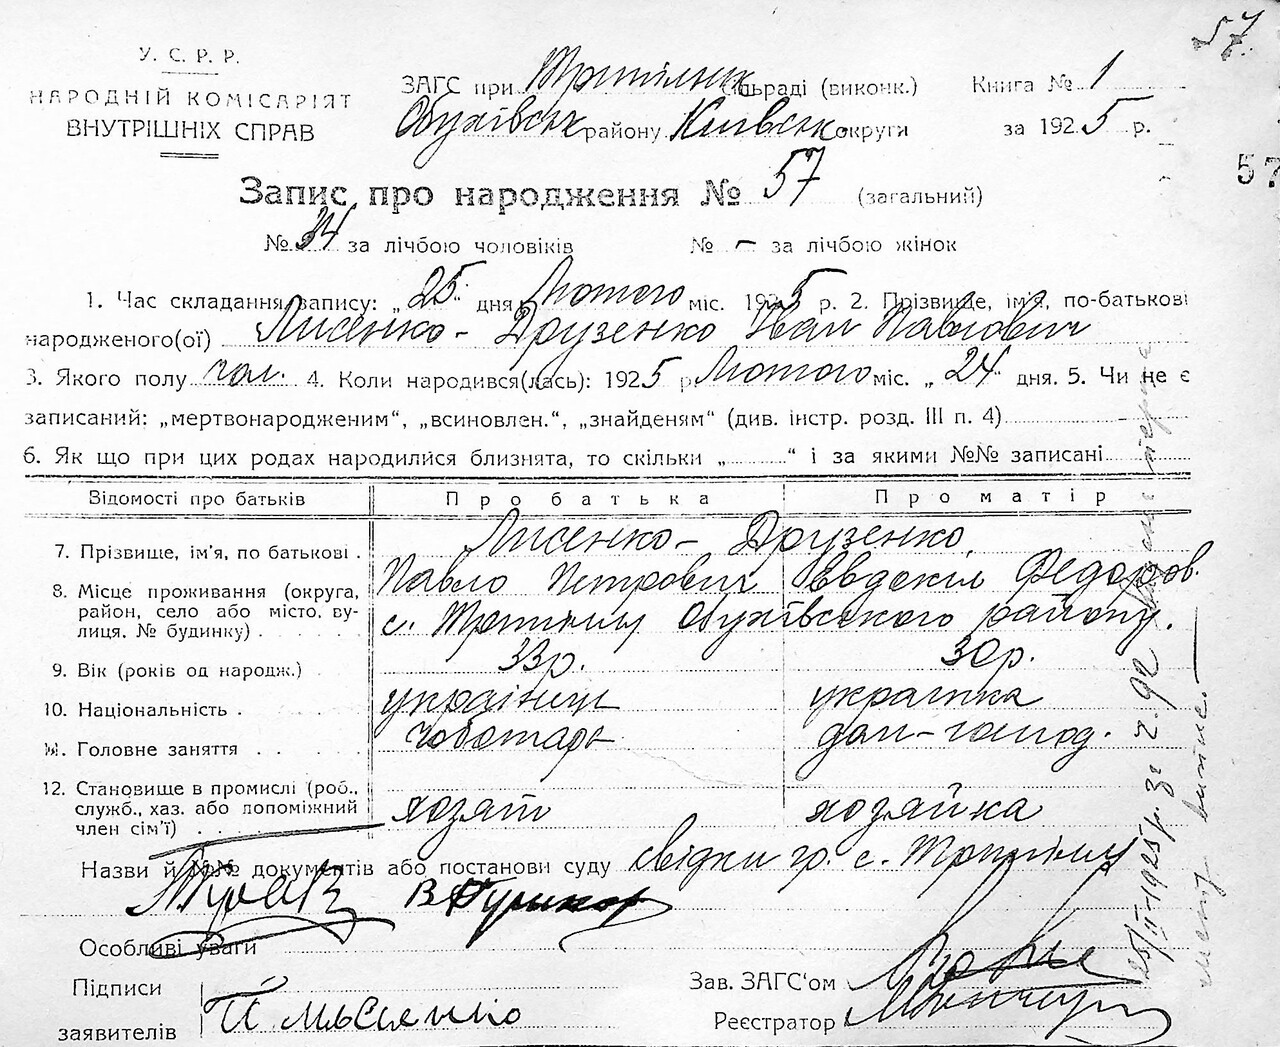 57.
У. С. Р. Р.
НАРОДНІЙ КОМІСАРІЯТ
ВНУТРІШНІХ СПРАВ
ЗАГС при Трипільск. сільраді (виконк.) Книга № 1
Обухівськ району Київськ. округи за 1925 р.
57
Запис про народження № 57 (загальний)
№ 34 за лічбою чоловіків № – за лічбою жінок
1. Час складання запису: „25“ дня Лютого міс. 1925 р. 2. Прізвище, ім'я, по-батькові
народженого(ої) Лисенко-Друзенко Іван Павлович
3. Якого полу чол. 4. Коли народився(лась): 1925 р Лютого міс. „24“ дня. 5. Чи не є
записаний: „мертвонародженим“, „всиновлен.“, „знайденям“ (див. інстр. розд. III п. 4)
6. Як що при цих родах народилися близнята, то скільки „ “ і за якими №№ записані
Відомості про батьків Про батька Про матір
7. Прізвище, ім'я, по батькові . Лисенко-Друзенко
Павло Петрович Євдокія Федоров.
8. Місце проживання (округа, район, село або місто, вулиця, № будинку) с. Трипілля Обухівського району.
9. Вік (років од народж.) 33р. 30р.
10. Національність . українець українка
11. Головне заняття чоботарь дом-господ.
12. Становище в промислі (роб., служб., хаз. або допоміжний член сім'ї) хозяїн хозяйка
Назви й №№ документів або постанови суду свідки гр. с. Трипілля
Особливі уваги
Підписи
заявителів
Зав. ЗАГС'ом
Реєстратор
25/II-1925р. Зг 2. 92